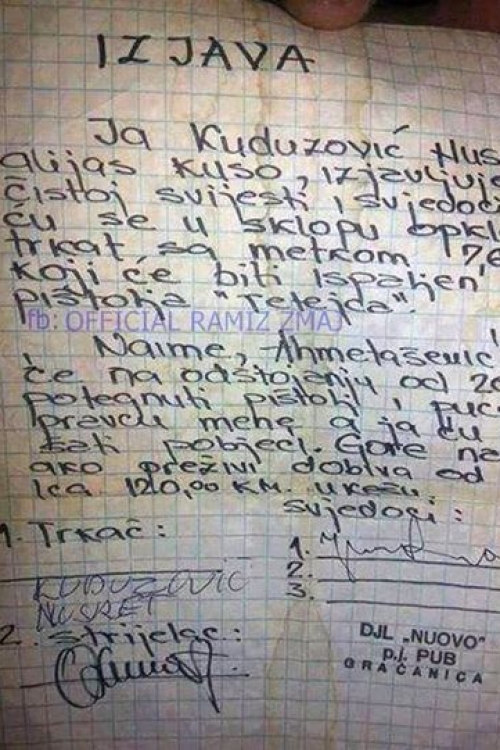 IZJAVA
Ja Kuduzović Hus
alijas Kuso, izjavljuje
čistoj svijesti i svjedoci
ću se u sklopu opkl
trkat sa metkom 76
koji će biti ispaljen
pištolja "Tetejca".
fb: OFFICIAL RAMIZ ZMAJ
Naime, Ahmetašević
će na odstojanju od 20
potegnuti pištolj i puc
pravcu mene a ja ću
šati pobjeći. Gore na
ako preživi dobiva od
lca 120,00 KM. u kešu.
svjedoci:
1. Trkač:
1.
2.
3.
KUDUZOVIĆ
NUSRET
2. Strijelac:
DJL „NUOVO"
p.j. PUB
GRAČANICA